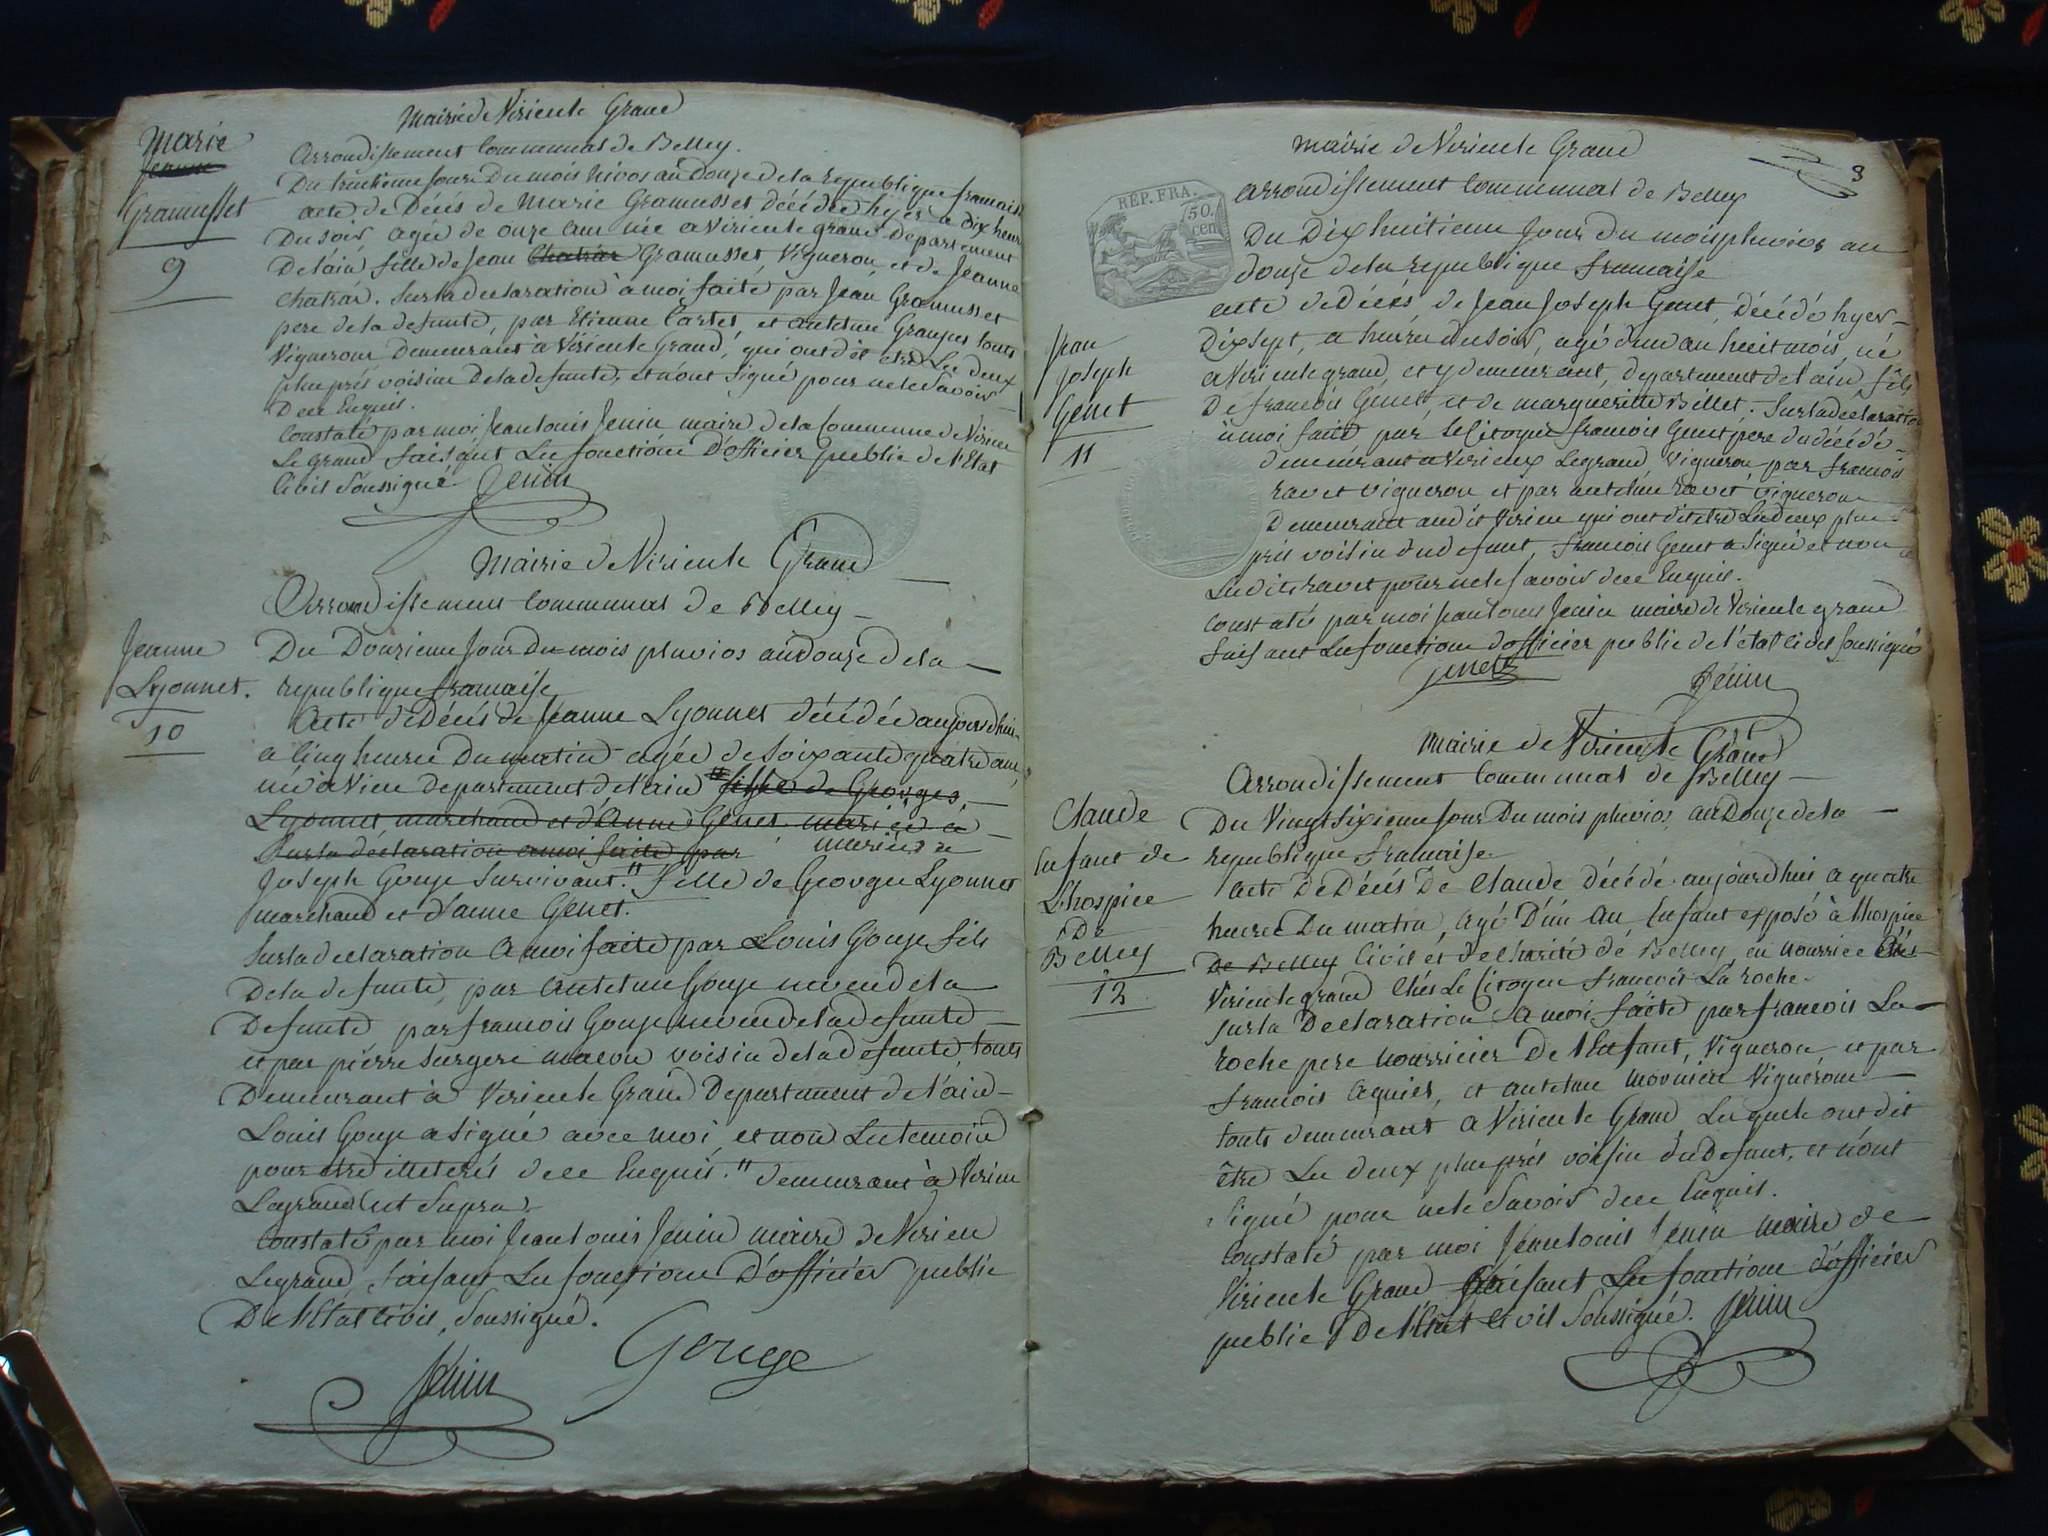 Mairie de Virieu le Grand
Marie
Jeanne
Gramusset
9
Arrondissement Communal de Belley.
Du trentieme jour Du mois Nivos an Douze de la republique francaise
acte de Décés de Marie Gramusset décédée hyer a dix heures
Du soir, agée de onze ans née a Virieu le grand Departement
De l'ain fille de Jean Chatrar Gramusset, Vigneron et de Jeanne
Chatrar. Sur la declaration à moi faite par Jean Gramusset
pere de la defunte, par Etienne Cartet, et antelme Granjus touts
Vignerons Demeurant à Virieu le Grand, qui ont dit etre Les Deux
plus prés voisins De la defunte, et n'ont Signé pour ne le Savoir
De ce Enquis.
Constaté par moi Jean louis Jenin maire de la Commune de Virieu
Le grand faisant Les fonctions D'officier public de l'Etat
Civil Soussigné. Jenin
Mairie de Virieu le Grand
Arrondissement Communal de Belley
Jeanne
Lyonnet.
10
Du Douzieme jour Du mois pluvios an douze de la
republique francaise
Acte de Décés de Jeanne Lyonnet décédée aujourd'hui
a Cinq heures Du matin agée de Soixante quatre ans
née a Vieu departement de l'ain fille de Georges
Lyonnet marchand et d'anne Genet. mariée a
Sur la déclaration a moi faite par mariée a
Joseph Gouje Survivant." fille de George Lyonnet
marchand et d'anne Genet.
Sur la declaration a moi faite par Louis Gouje fils
De la defunte, par antelme Gouje neveu de la
Defunte par francois Gouje neveu de la defunte
et par pierre Surgere macon voisin de la defunte, touts
Demeurant à Virieu le Grand Departement de l'ain
Louis Gouje a Signé avec moi, et non Les temoins
pour etre illeterés de ce Enquis." demeurant à Virieu
Legrand ut Supra.
Constaté par moi Jean louis Jenin maire de Virieu
Legrand, faisant Les fonctions D'officier public
De l'Etat Civil, Soussigné.
Gouge
Jenin
3
mairie de Virieu le Grand
REP. FRA.
50.
cen
arrondissement Communal de Belley
Du Dix huitieme jour du mois pluvios an
douze de la republique francaise
Jean
Joseph
Genet
11
acte de Décés de Jean Joseph Genet, Décédé hyer
Dix sept, a heures du soir, agé d'un an huit mois, né
a Virieu le grand, et y demeurant, departement de l'ain, fils
De francois Genet, et de marguerite Bellet. Sur la declaration
à moi faite par le Citoyen francois Genet pere du décédé
demeurant a Virieux Legrand, Vigneron par francois
ravet vigneron et par antelme ravet vigneron
Demeurant au dit Virieu qui ont dit etre Les deux plus
prés voisins du defunt, francois Genet a Signé et non
Les dits ravet pour ne le savoir de ce Enquis.
Constatés par moi jean louis Jenin maire de Virieu le grand
faisant Les fonctions d'officier public de l'état civil soussigné
Jenin
Mairie de Virieu le Grand
Arrondissement Communal de Belley
Claude
Enfant de
L'hospice
De
Belley
12
Du Vingt Sixieme jour Du mois pluvios, an Douze de la
republique francaise
Acte De Décés De Claude décédé aujourdhui a quatre
heures Du matin, agé D'un an Enfant exposé à l'hospice
De Belley Civil et de Charité de Belley, en nourrice Chés
Virieu le grand Chés Le Citoyen francois La roche.
Sur la Declaration a moi faite par francois La
roche pere nourricier De l'Enfant, Vigneron, et par
francois Aguiés, et antelme mouniere Vignerons
touts demeurant a Virieu le Grand Lesquels ont dit
être Les deux plus prés voisins du Defunt, et n'ont
Signé pour ne le Savoir de ce Enquis.
Constaté par moi Jean louis Jenin maire de
Virieu le Grand faisant Les fonctions d'officier
public De l'Etat Civil Soussigné. Jenin